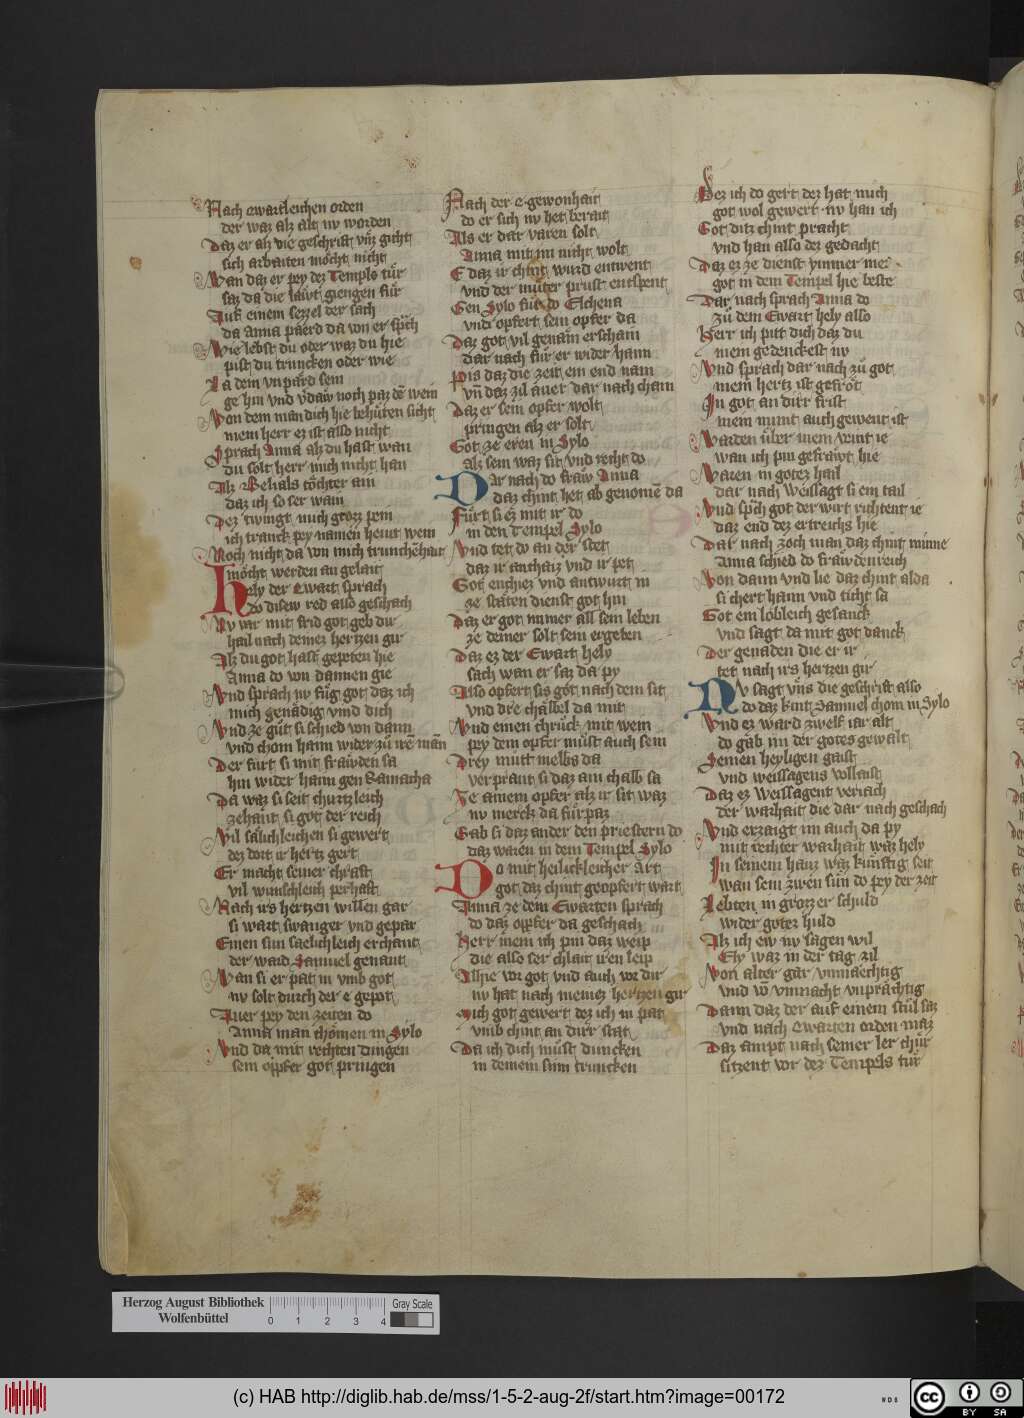 Nach ewartleichen orden
der waz alz alt nv worden
Daz er alz die geschrift vnz gicht
sich arbaiten mocht nicht
Wan daz er pey dez Templs tuͤr
saz da die laͤwt giengen fuͤr
Auf einem sezzel der sach
da Anna paͤrd da von er sp̃ch
Wie lebst du oder waz du hie
pist du truncken oder wie
La dem vnpaͤrd sein
ge hin vnd vdaͤw noch paz dē wein
Von dem man dich hie behuͤten sicht
mein herr ez ist also nicht
Sprach Anna alz du hast wan
du solt herr mich nicht han
Alz Belials toͤchter ain
daz ich so ser wain
Dez twingt mich grozz pein
ich tranck pey namen hewt wein
Noch nicht da von mich trunchēhait
moͤcht werden an gelait
Hely der Ewart sprach
do disew red also geschach
Nv var mit frid got geb dir
hail nach deinez hertzen gir
Alz du got hast gepeten hie
Anna do von dannen gie
Vnd sprach nv fuͤg got daz ich
mich genaͤdig vind dich
Vnd ze guͤt si schied von dann
vnd chom haim wider zuͦ irē man
Der fuͤrt si mit frawden sa
hin wider haim gen Ramacha
Da waz si seit churtzleich
zehant si got der reich
Vil saͤlichleichen si gewert
dez dort ir hertz gert
Er macht seiner chraft
vil wunschleich perhaft
Nach irs hertzen willen gar
si wart swanger vnd gepar
Einen sun saelichleich erchant
der ward Samuel genant
Wan si er pat in vmb got
nv solt durch der e gepot
Auer pey den zeiten do
Anna man chomen in Sylo
Vnd da mit rechten dingen
sein opfer got pringen
Nach der e gewonhait
do er sich nv het berait
Als er dar varen solt
Anna mit im nicht wolt
E daz ir chint wurd entwent
vnd der muͤter prust entspent
Gen Sylo fuͦr do Elchena
vnd opfert sein opfer da
Daz got vil genaͤm erschain
dar nach fuͦr er wider haim
Pis daz die zeit ein end nam
vn̄ daz zil auer dar nach cham
Daz er sein opfer wolt
pringen alz er solt
Got ze eren in Sylo
Alz sein waz sit vnd recht do
Dar nach do fraw Anna
daz chint het ab genomē da
Fuͤrt si ez mit ir do
in den Tempel Sylo
Vnd tet do an der stet
daz ir anthaiz vnd ir pet
Got enthiez vnd antwurt in
ze staͤten dienst got hin
Daz er got immer all sein leben
ze deiner solt sein ergeben
Daz ez der Ewart hely
sach wan er saz da py
Also opfert sis got nach dem sit
vnd dre chaͤlbel da mit
Vnd einen chruͦck mit wein
pey dem opfer muͦst auch sein
Drey mutt melbs da
verprant si daz ain chalb sa
Ze ainem opfer alz ir sit waz
nv merck da fuͤrpaz
Gab si daz ander den priestern do
daz waren in dem Tempel Sylo
Do mit heilickleicher art
got daz chint geopfert wart
Anna ze dem Ewarten sprach
do daz opfer da geschach
Herr mein ich pin daz weip
die also ser chlait iren leip
Alhie vor got vnd auch vor dir
nv hat nach meinez hertzen gir
Mich got gewert dez ich in pat
vmb chint an dirr stat
Da ich dich muͤst duncken
in deinem sinn truncken
Dez ich do gert dez hat mich
got wol gewert nv han ich
Got ditz chint pracht
vnd han also dez gedacht
Daz ez ze dienst ymmer mer
got in dem Tempel hie beste
Dar nach sprach Anna do
zuͦ dem Ewart hely also
Herr ich pitt dich daz du
mein gedenckest nv
Vnd sprach dar nach zuͦ got
mein hertz ist gefroͤt
In got an dirr frist
mein munt auch geweut ist
Warden uͤber mein veint ie
wan ich pin gefraͤwt hie
Waren in gotez hail
dar nach weissagt si ein tail
Vnd sp̃ch got der wirt richtent ie
daz end dez ertreichs hie
Dar nach zoch man daz chint minne
Anna schied do fraͤwdenreich
Von dann vnd lie daz chint alda
si chert haim vnd ticht sa
Got ein loͤbleich gesanck
vnd sagt da mit got danck
Der genaden die er ir
tet nach irs hertzen gir
Nv sagt vns die geschrift also
do daz kint Samuel chom in Sylo
Vnd ez ward zwelf iar alt
do gab im der gotes gewalt
Seinen heyligen gaist
vnd weissagens vollaist
Daz ez weissagent veriach
der warhait die dar nach geschach
Vnd erzaigt im auch da py
mit rechter warhait waz hely
In seinem hauz waz kuͤnftig seit
wan sein zwen suͤn do pey der zeit
Lebten in grozzer schuld
wider gotez huld
Alz ich ew nv sagen wil
Ely waz in der tag zil
Von alter gar vnmaechtig
vnd vō vnmacht vnpraͤchtig
Dann daz der auf einem stuͤl saz
vnd nach Ewarten orden maz
Daz ampt nach seiner ler chuͤr
sitzent vor dez Tempels tuͤr
Herzog August Bibliothek
Wolfenbüttel
0 1 2 3 4
Gray Scale
(c) HAB http://diglib.hab.de/mss/1-5-2-aug-2f/start.htm?image=00172
WDB
cc BY SA